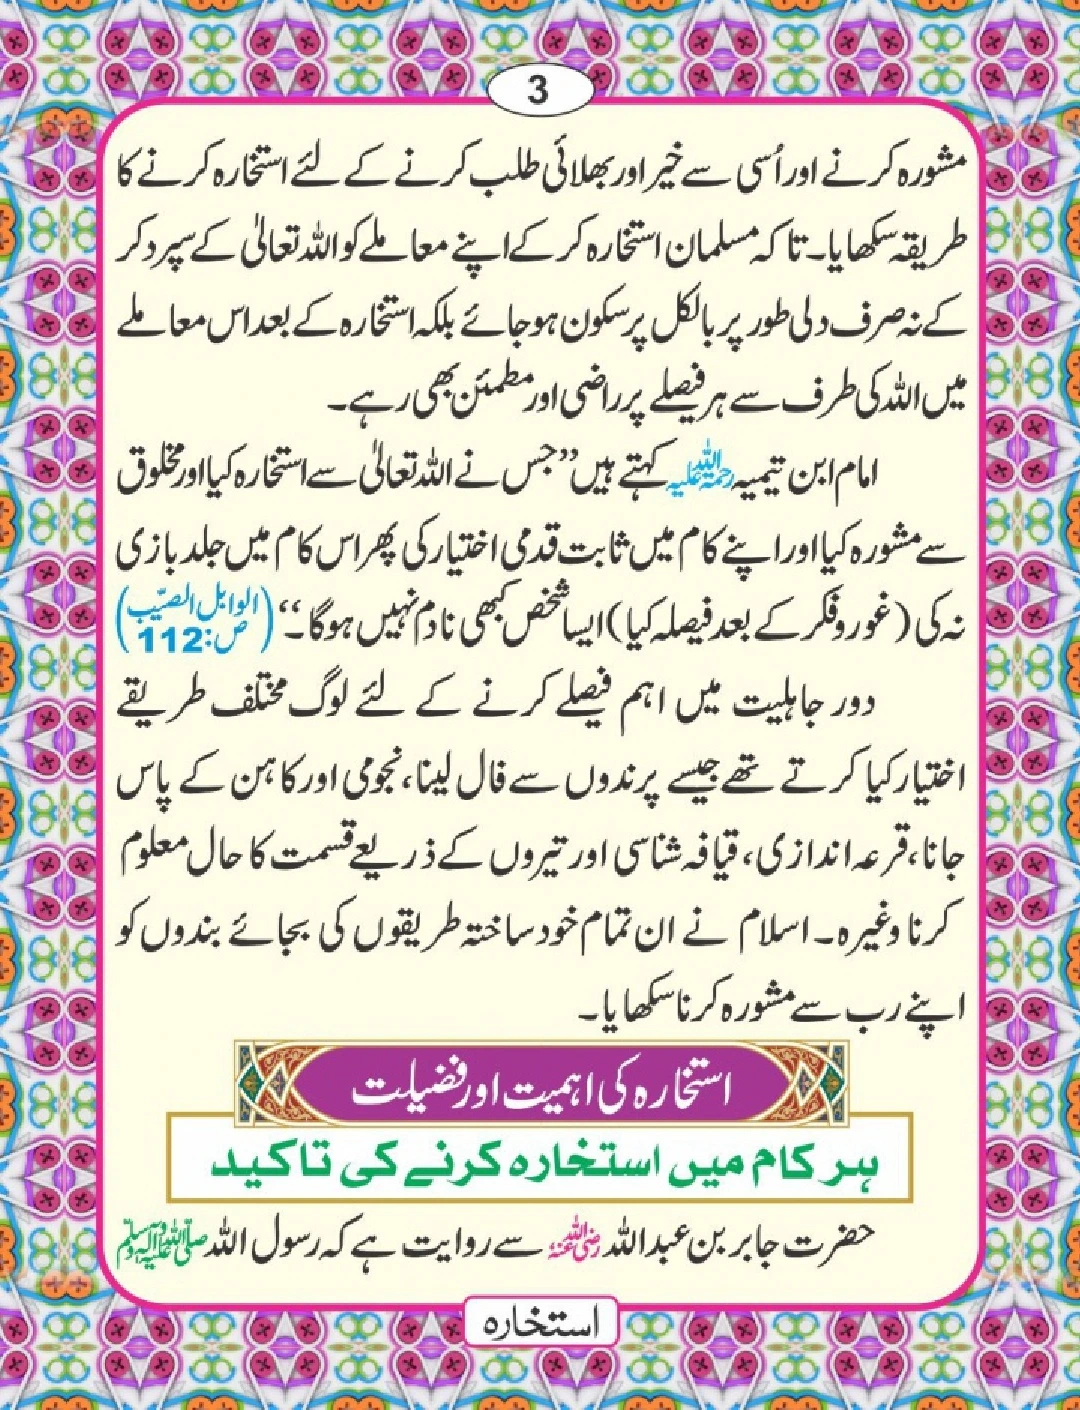 3
مشورہ کرنے اور اُسی سے خیر اور بھلائی طلب کرنے کے لئے استخارہ کرنے کا
طریقہ سکھایا۔ تاکہ مسلمان استخارہ کر کے اپنے معاملے کو اللہ تعالیٰ کے سپرد کر
کے نہ صرف دلی طور پر بالکل پرسکون ہو جائے بلکہ استخارہ کے بعد اس معاملے
میں اللہ کی طرف سے ہر فیصلے پر راضی اور مطمئن بھی رہے۔
امام ابن تیمیہ رحمۃ اللہ علیہ کہتے ہیں ”جس نے اللہ تعالیٰ سے استخارہ کیا اور مخلوق
سے مشورہ کیا اور اپنے کام میں ثابت قدمی اختیار کی پھر اس کام میں جلد بازی
نہ کی (غور و فکر کے بعد فیصلہ کیا) ایسا شخص کبھی نادم نہیں ہوگا۔“ (الوابل الصیّب ص:112)
دور جاہلیت میں اہم فیصلے کرنے کے لئے لوگ مختلف طریقے
اختیار کیا کرتے تھے جیسے پرندوں سے فال لینا، نجومی اور کاہن کے پاس
جانا، قرعہ اندازی، قیافہ شناسی اور تیروں کے ذریعے قسمت کا حال معلوم
کرنا وغیرہ۔ اسلام نے ان تمام خود ساختہ طریقوں کی بجائے بندوں کو
اپنے رب سے مشورہ کرنا سکھایا۔
استخارہ کی اہمیت اور فضیلت
ہر کام میں استخارہ کرنے کی تاکید
حضرت جابر بن عبداللہ رضی اللہ عنہ سے روایت ہے کہ رسول اللہ صلی اللہ علیہ وآلہ وسلم
استخارہ